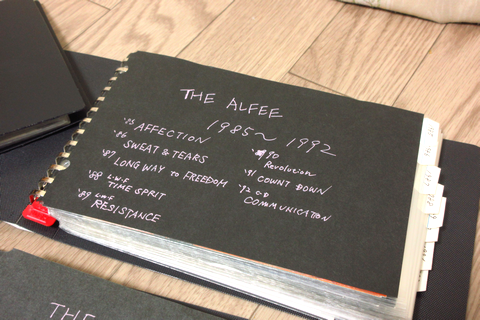 THE ALFEE
1985～1992
'85 AFFECTION
'86 SWEAT & TEARS
'87 LONG WAY to FREEDOM
'88 L.W.F
TIME SPRIT
'89 L.W.F
RESISTANCE
'90
Revolution
'91 COUNT DOWN
'92 C.D
COMMUNICATION
THE